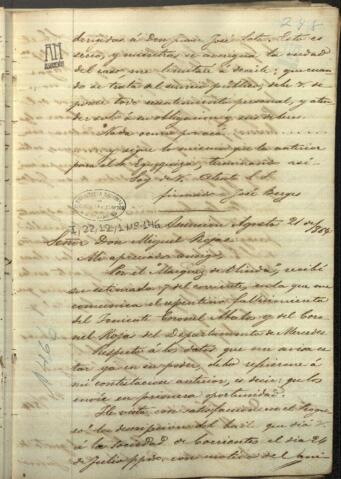 248
devuidas á don Juan José Soto. Esto es
serio, y mientras se averigua la verdad
del caso me limitaré á decirle; que cuan
do se trata del servicio público, debe V.
todo sentimiento personal, y aten
der solo á su obligacion y sus deberes.
Nada ocurre por acá.
y sigue lo mismo que la anterior
para el Sr. Egusquiza, terminando así
Soy de V. Atento S. S.
firmado José Berges
I,22,12,1 Nº 146
Asuncion Agosto 21 de 1864
Señor Don Miguel Rojas
Mi apreciado amigo:
Con el Marques de Olinda, recibí
su estimada 7 del corriente, en la que me
comunica el repentino fallecimiento
del Teniente Coronel Abalos y del Coro
nel Rojas del Departamento de Mercedes
Respecto á los datos que me avisa es
tar ya en su poder, debo referirme á
mi contestacion anterior, es decir, que los
envíe en primera oportunidad.
He visto con satisfaccion en el Progre
so la descripcion del baile que dió V.
á la sociedad de Corrientes el dia 24
de Julio ppdo, con motivo del